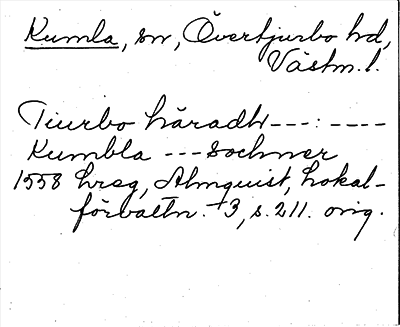 Kumla, sn, Övertjurbo hd,
Västm. l.
Tiurbo häradh ---:----
Kumbla --- Sochner
1558 hreg, Almquist, Lokal-
förvaltn. 3, s. 211. orig.